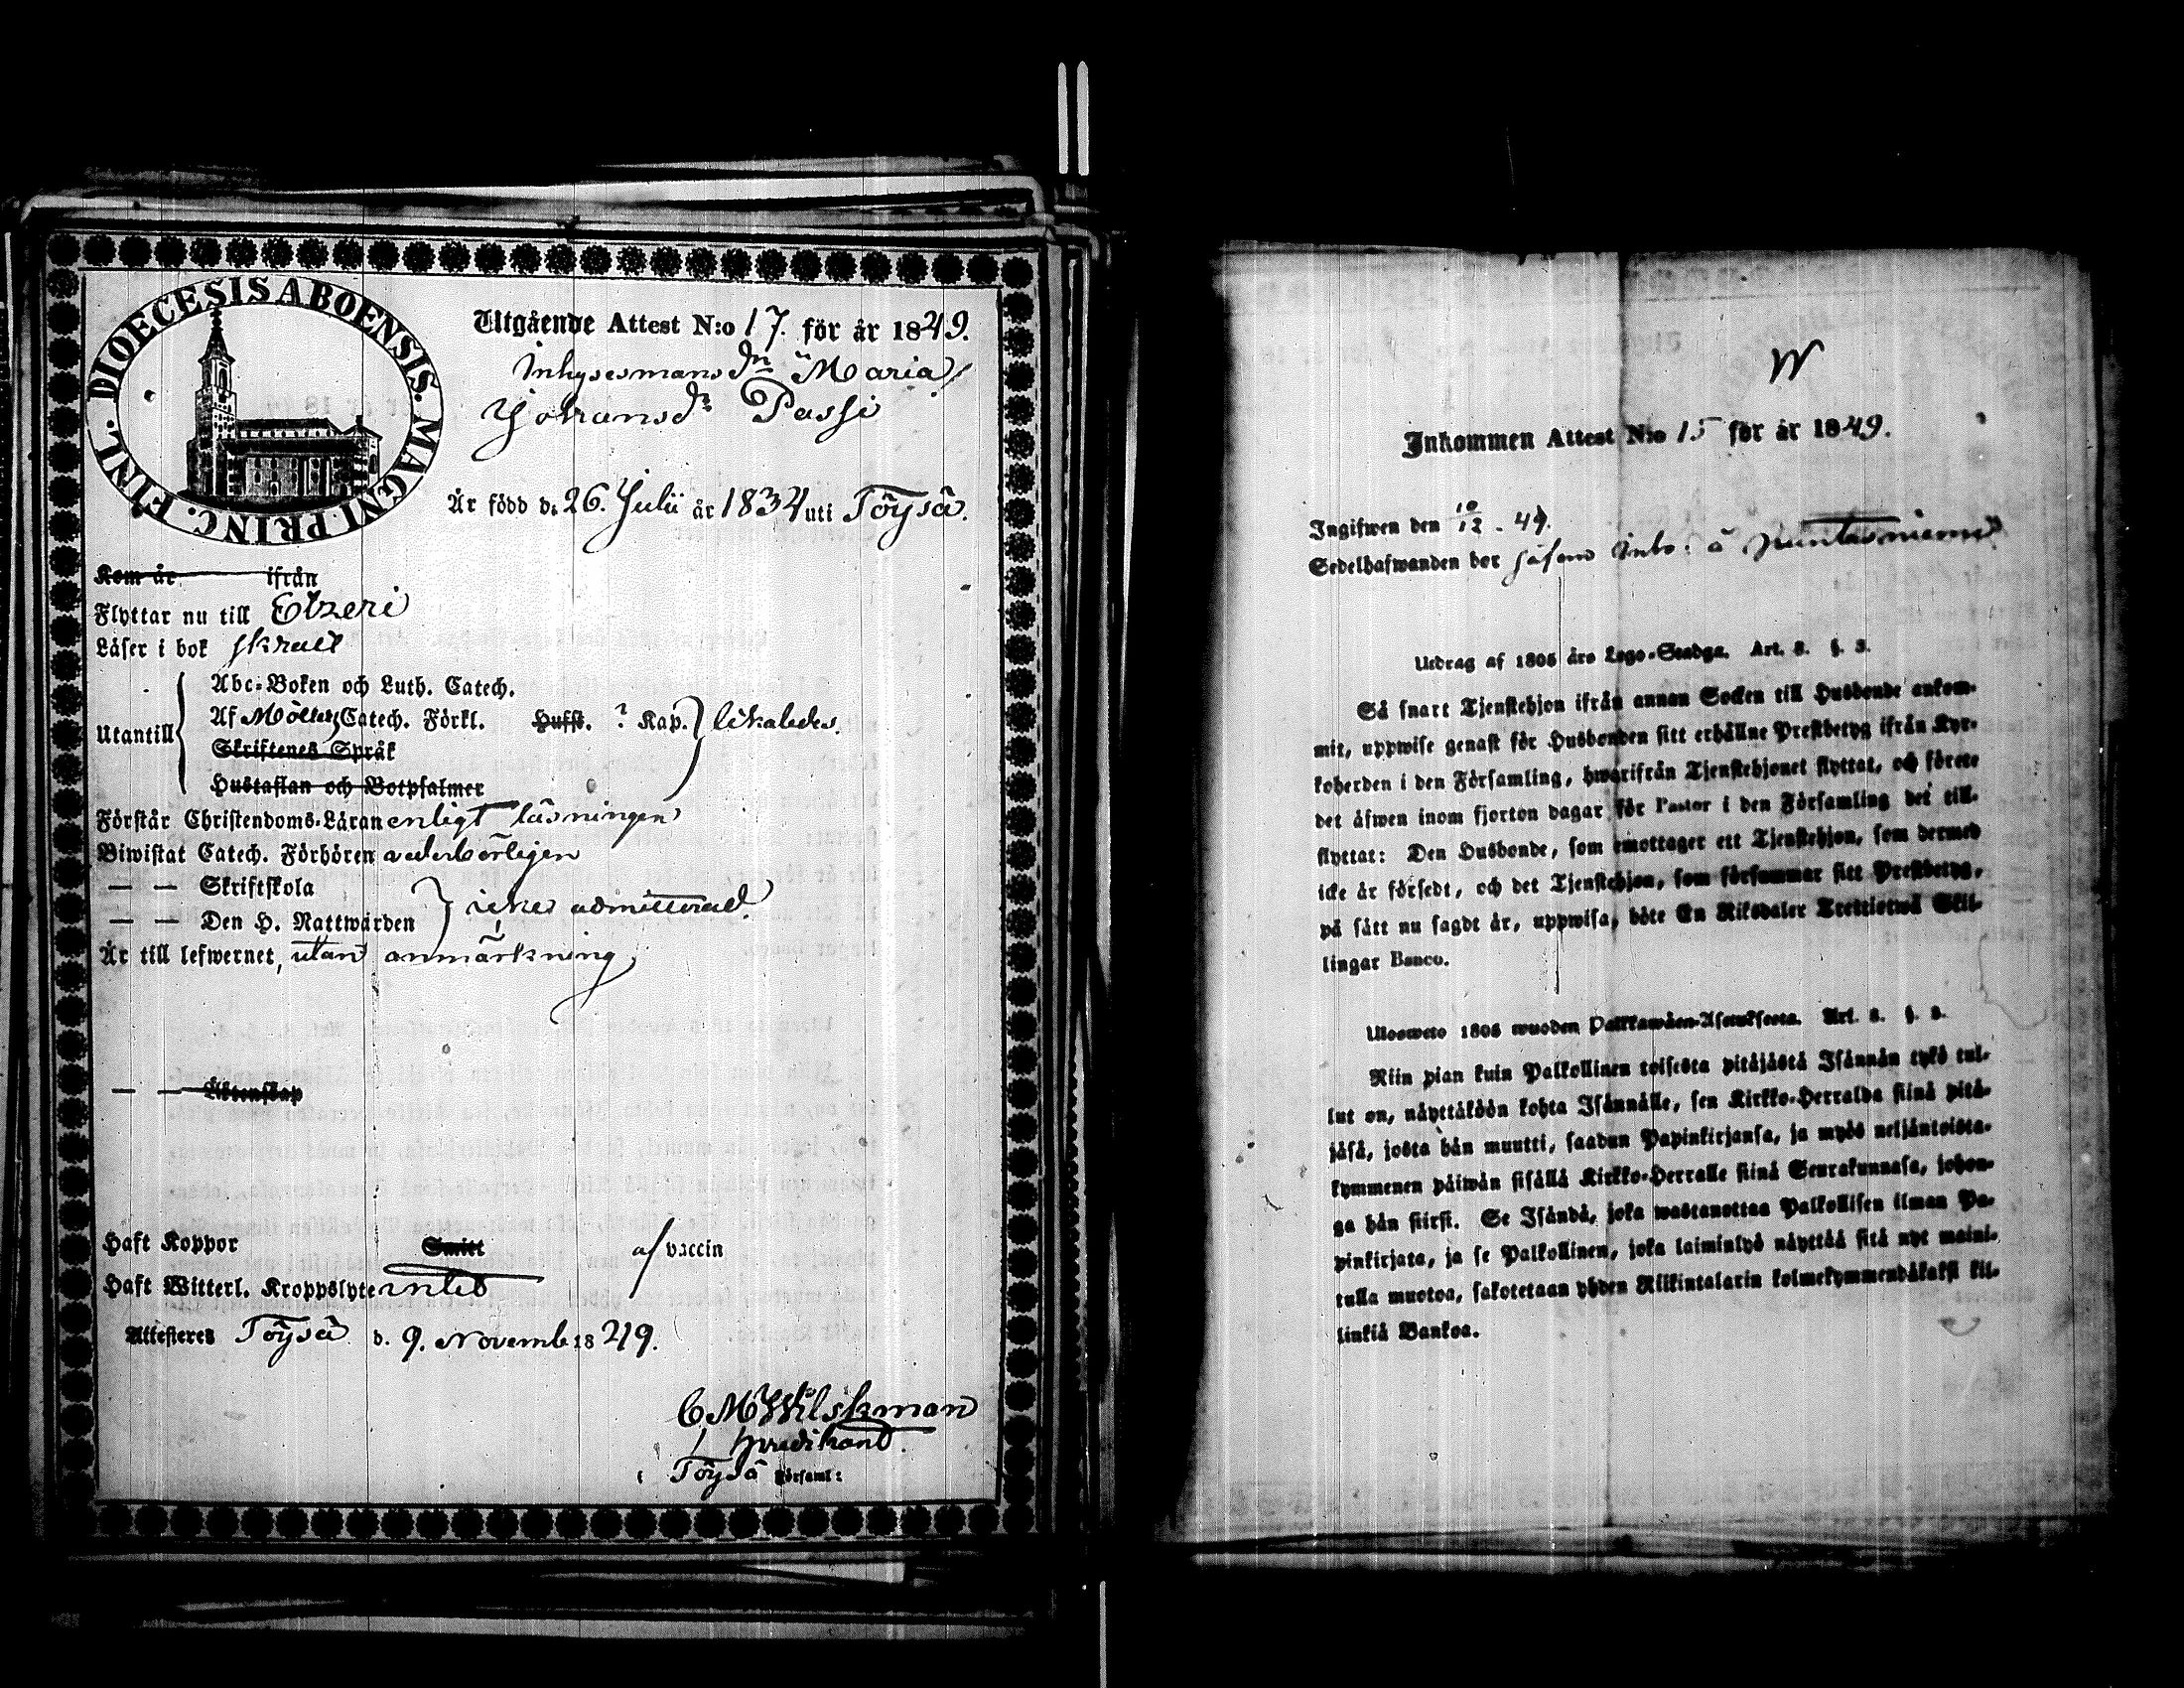 DIOECESIS ABOENSIS. MAGNI. PRINC. FINL.
Utgående Attest N:o 17. för år 1849.
Inhysesmans dr Maria
Johansdr Passi
Är född d. 26. Julii år 1834 uti Töysä.
Kom år ifrån
Flyttar nu till Etzeri
Läser i bok skralt
Abc-Boken och Luth. Catech.
Utantill Af Möllers Catech. Förkl. Hufst. ? Kap. likaledes.
Skriftenes Språk
Hustaflan och Botpsalmer
Förstår Christendoms-Läran enligt läsningen
Biwistat Catech. Förhören vederbörligen
— — Skriftskola
— — Den H. Nattwarden icke admitterad.
Är till lefwernet, utan anmärkning
— — Äktenskap
Haft Koppor Smitt af vaccin
Haft Witterl. Kroppslyte intet
Attesteres Töysä d. 9. Novemb. 1849.
C M Wilskman
predikant.
i Töysä Församl:
Inkommen Attest N:o 15 för år 1849.
Ingifwen den 10/12 - 49.
Sedelhafwanden bor såsom inh. å
Utdrag af 1805 års Lego-Stadga. Art. 8. §. 3.
Så snart Tjenstehjon ifrån annan Socken till Husbonde ankom-
mit, uppwise genast för Husbonden sitt erhållne Prestbetyg ifrån Kyr-
koherden i den Församling, hwarifrån Tjenstehjonet flyttat, och förete
det äfwen inom fjorton dagar för Pastor i den Församling det till-
flyttat: Den Husbonde, som emottager ett Tjenstehjon, som dermed
icke är försedt, och det Tjenstehjon, som försummar sitt Prestbetyg,
på sätt nu sagdt är, uppwisa, böte En Riksdaler Trettiotwå Skil-
lingar Banco.
Ulosweto 1805 wuoden Palkkawäen-Asetuksesta. Art. 8. §. 3.
Niin pian kuin Palkollinen toisesta pitäjästä Isännän tykö tul-
lut on, näyttäköön kohta Isännälle, sen Kirkko-Herralda siinä pitä-
jäsä, josta hän muutti, saadun Papinkirjansa, ja myös neljäntoista-
kymmenen päiwän sisällä Kirkko-Herralle siinä Seurakunnasa, johon-
ga hän siirsi. Se Isändä, joka wastanottaa Palkollisen ilman Pa-
pinkirjata, ja se Palkollinen, joka laiminlyö näyttää sitä nyt maini-
tulla muotoa, sakotetaan yhden Riikintalarin kolmekymmendäkaksi kil-
linkiä Bankoa.